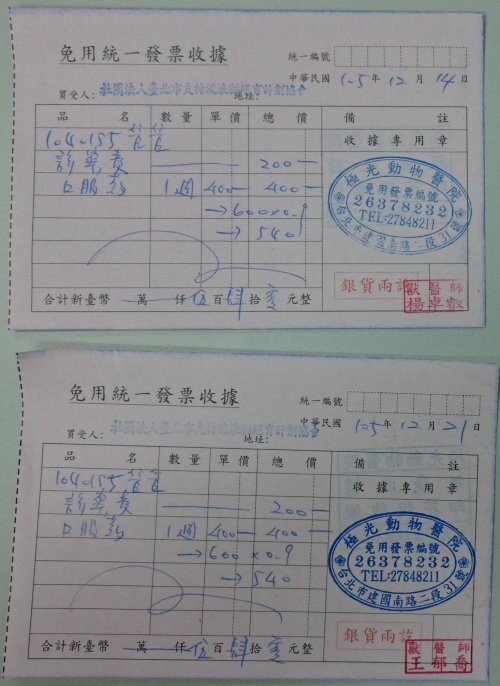 免用統一發票收據
統一編號
中華民國 105年 12月 14日
買受人: 社團法人臺北市支持流浪貓絕育計劃協會 地址:
品名 數量 單價 總價 備註
1040155 收據專用章
診察費 200
口服藥 1週 400 400
→ 600×0.9
→ 540
極光動物醫院
免用發票編號
26378232
TEL:27848211
台北市建國南路二段31號
銀貨兩訖
獸醫師
楊卓叡
合計新臺幣 萬 仟 伍百 肆拾 零元整
免用統一發票收據
統一編號
中華民國 105年 12月 21日
買受人: 社團法人臺北市支持流浪貓絕育計劃協會 地址:
品名 數量 單價 總價 備註
1040155 收據專用章
診察費 200
口服藥 1週 400 400
→ 600×0.9
→ 540
極光動物醫院
免用發票編號
26378232
TEL:27848211
台北市建國南路二段31號
銀貨兩訖
獸醫師
王郁喬
合計新臺幣 萬 仟 伍百 肆拾 零元整